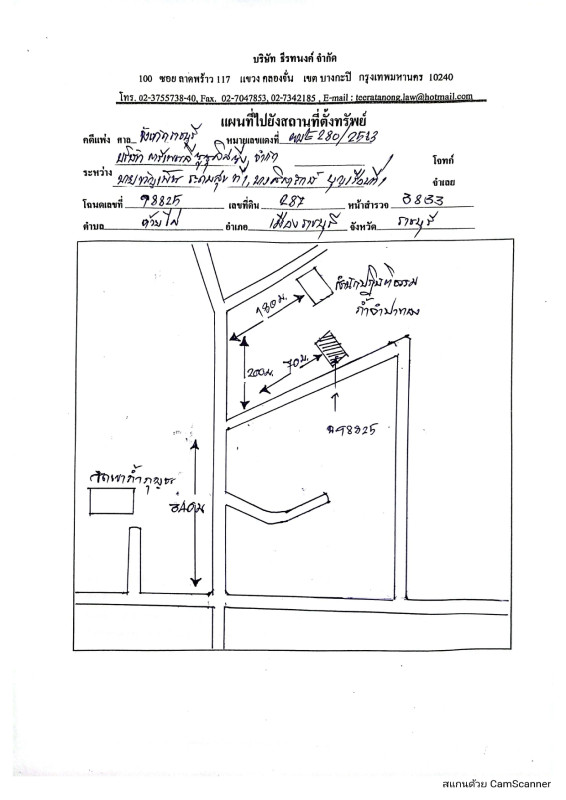 บริษัท ธีรทนงค์ จำกัด
100 ซอย ลาดพร้าว 117 แขวง คลองจั่น เขต บางกะปิ กรุงเทพมหานคร 10240
โทร. 02-3755738-40, Fax. 02-7047853, 02-7342185 , E-mail : teeratanong.law@hotmail.com
แผนที่ไปยังสถานที่ตั้งทรัพย์
คดีแพ่ง ศาล จังหวัดราชบุรี หมายเลขแดงที่ ผบE280/2563
บริษัท จำกัด โจทก์
ระหว่าง ที่1, จำเลย
โฉนดเลขที่ 98825 เลขที่ดิน 287 หน้าสำรวจ 3833
ตำบล อำเภอ เมืองราชบุรี จังหวัด ราชบุรี
180 ม.
สำนักปฏิบัติธรรม
ถ้ำจำปาทอง
200ม.
70 ม.
ฉ98825
840ม
สแกนด้วย CamScanner